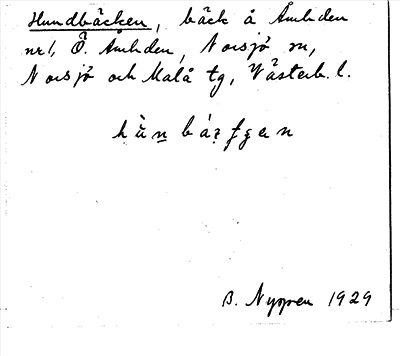 Hundbäcken, bäck å Åmliden
nr 1, Ö. Åmliden, Norsjö sn,
Norsjö och Malå tg, Västerb. l.
B. Nygren 1929